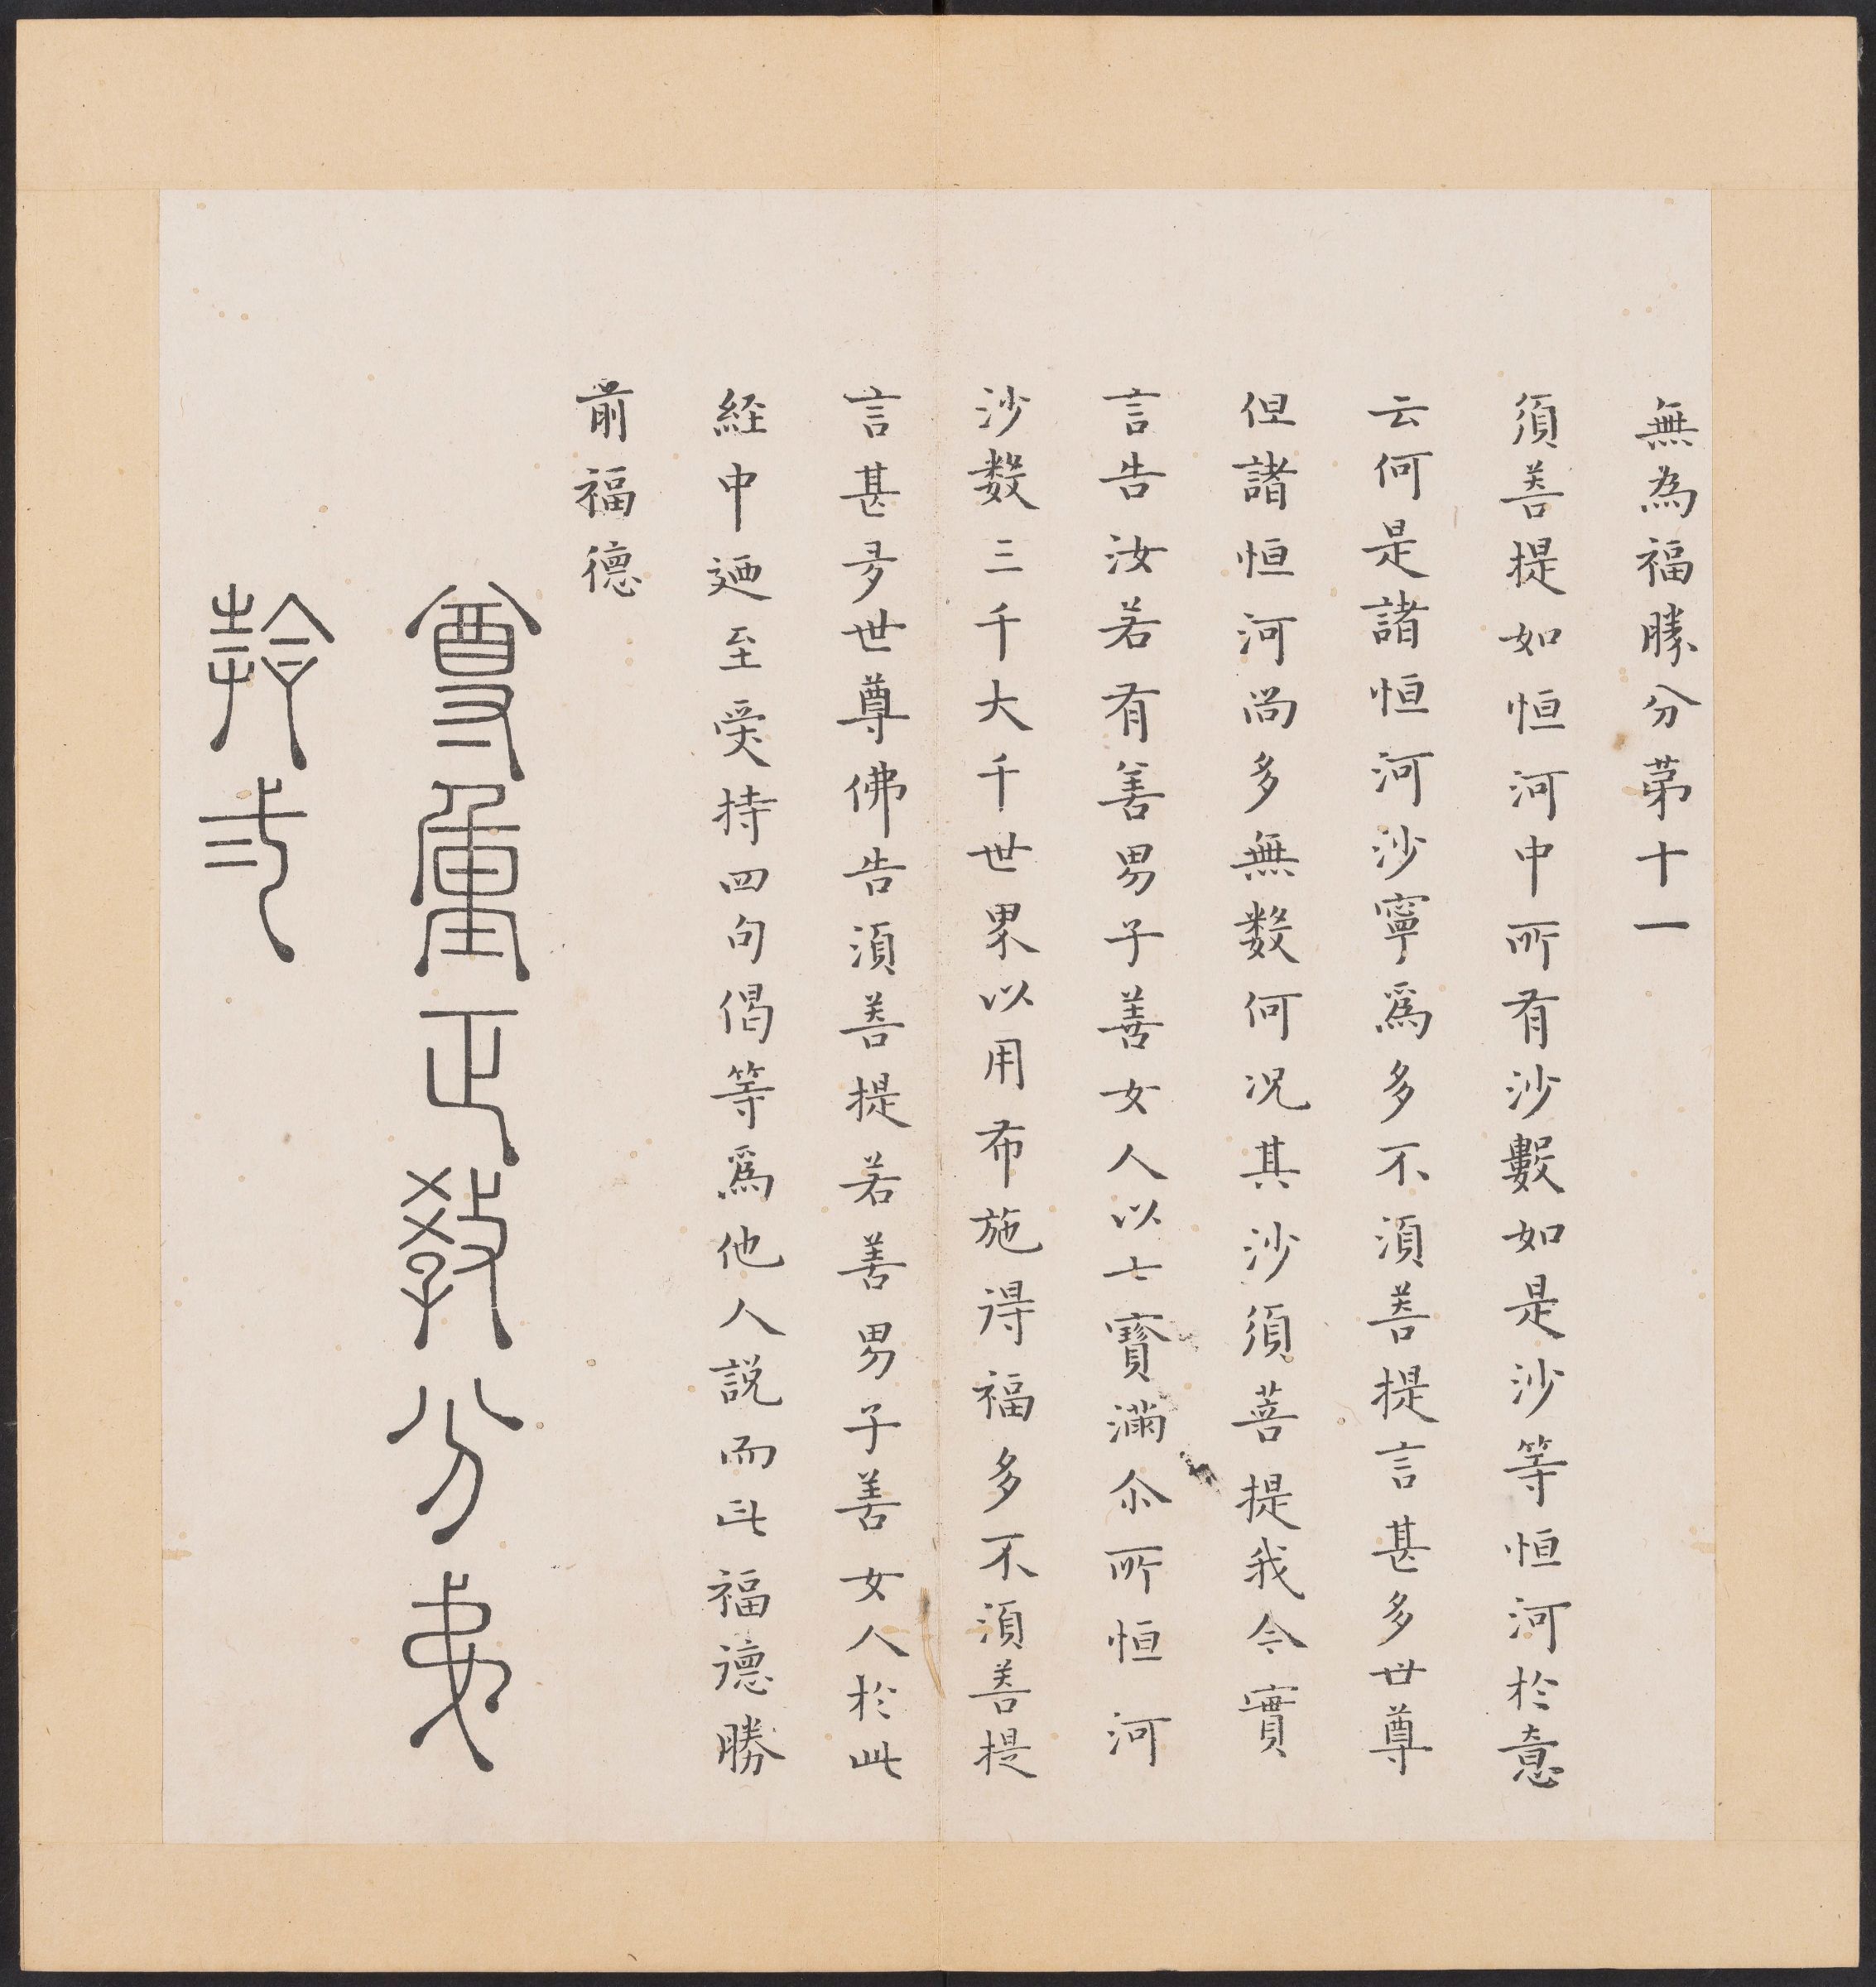 無為福勝分第十一
須菩提如恒河中所有沙數如是沙等恒河於意
云何是諸恒河沙寧爲多不須菩提言甚多世尊
但諸恒河尚多無数何况其沙須菩提我今實
言告汝若有善男子善女人以七寳滿尒所恒河
沙数三千大千世界以用布施得福多不須菩提
言甚多世尊佛告須菩提若善男子善女人於此
経中廼至受持四句偈等爲他人説而此福德勝
前福德
尊重正教分第
十二